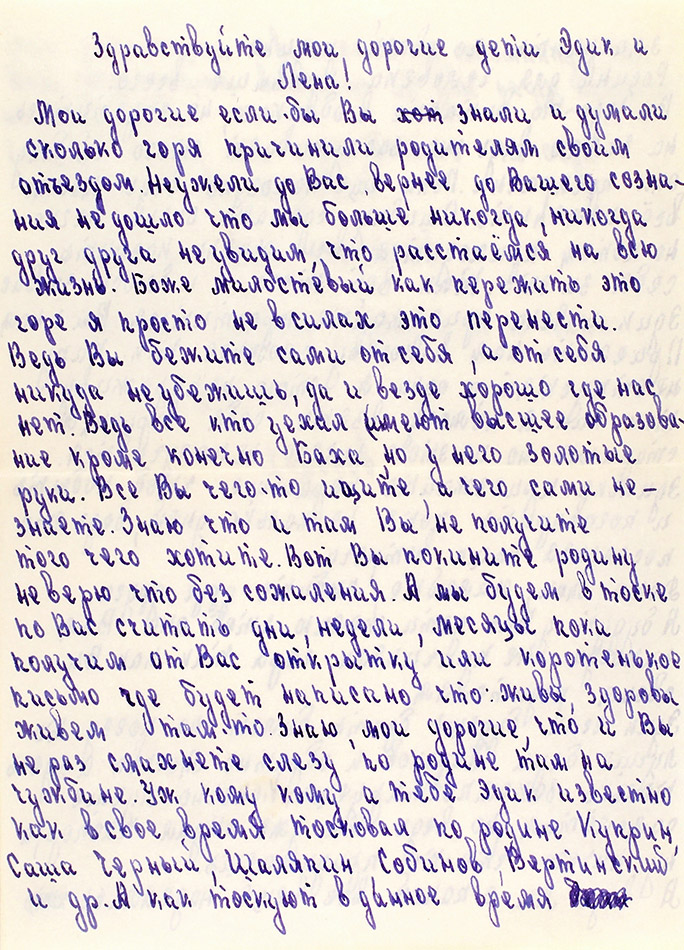 Здравствуйте мои, дорогие дети Эдик и
Лена!
Мои дорогие если-бы Вы хот знали и думали
сколько горя причинили родителям своим
отъездом. Неужели до Вас, вернее до Вашего созна-
ния не дошло что мы больше никогда, никогда
друг друга неувидим что расстаёмся на всю
жизнь. Боже милостевый как пережить это
горе я просто не всилах это перенести.
Ведь Вы бежите сами от себя, а от себя
никуда неубежишь, да и везде хорошо где нас
нет. Ведь все кто уехал имеют высшее образова-
ние кроме конечно Баха но у него золотые
руки. Все Вы чего-то ищите, а чего сами не-
знаете. Знаю что и там Вы не получите
того чего хотите. Вот Вы покините родину
неверю что без сожаления. А мы будем в тоске
по Вас считать дни, недели, месяцы пока
получим от Вас открытку или коротенькое
письмо где будет написано что: живы, здоровы
живем там-то. Знаю мои дорогие что и Вы
не раз смахнете слезу по родине там на
чужбине. Уж кому кому, а тебе Эдик известно
как в свое время тосковал по родине Куприн,
Саша Черный, Шаляпин, Собинов, Вертинский
и др. А как тоскуют в данное время